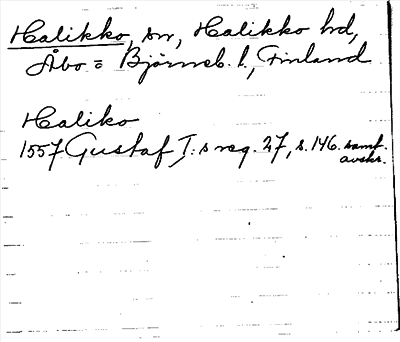 Halikko, sn, Halikko hd,
Åbo = Björneb. l., Finland
Haliko
1557 Gustaf I:s reg. 27, s. 146. samt.
avskr.